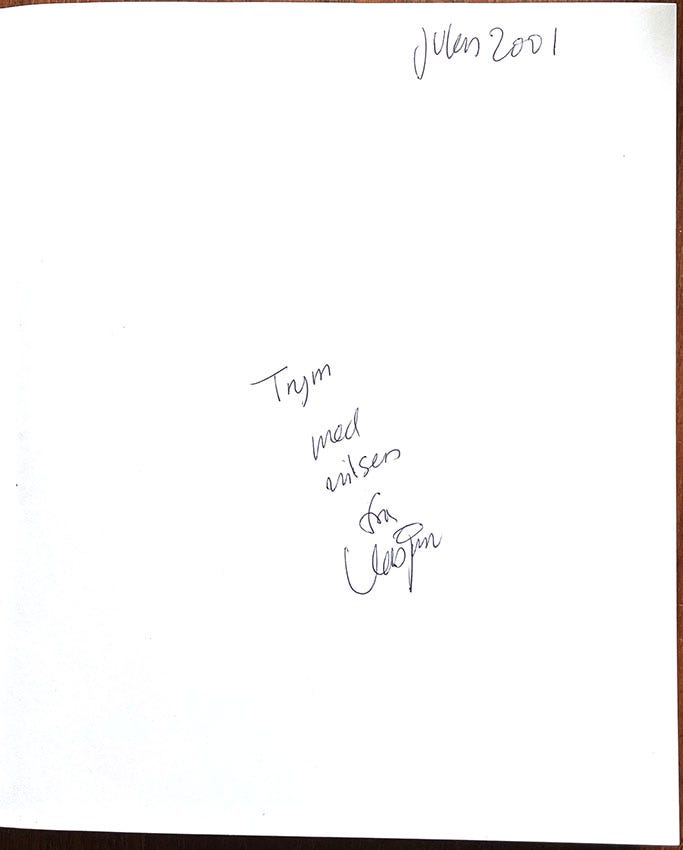 Julen 2001
Trym
med
hilsen
fra